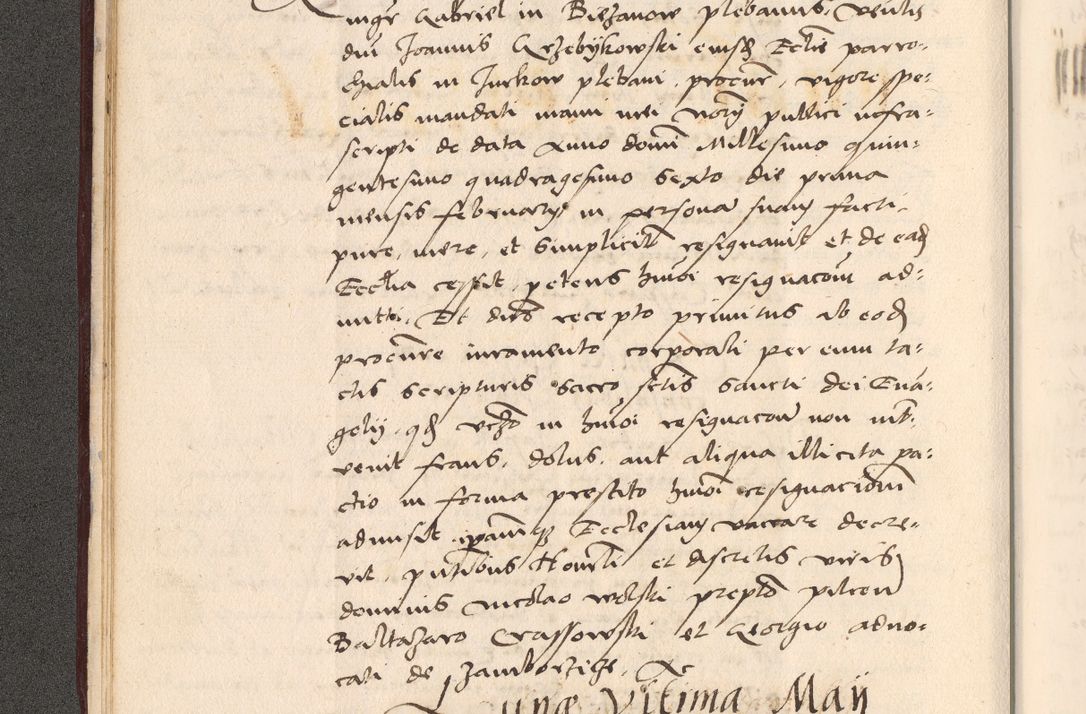 mgr Gabriel in Biezanow plebanus, veñlis
dni Joannis Grzebykowski eiusd Ecclie parro-
chialis in Jurkow plebani, procur, vigore spe-
cialis mandati manu mei norij publici infra-
scripti de data Anno domi Millesimo quin-
gentesimo quadragesimo Sexto die prima
mensis februarij in persona suam facti,
pure, mere, et Simplicitr resignauit et de ead
Ecclia cessit, petens hmoi resignacom ad-
mitti, Et dns recepto primitus ab eod
procure iuramento corporali per eum ta-
ctis scripturis sacrosctis sancti dei Eua-
gelij, qd in hmoi resignacom non inter-
venit fraus, dolus, aut aliqua illicita pa-
ctio in forma prestito hmoi resignacionem
admisit, ipamq Ecclesiam vaccare decre-
vit, pntibus Honorli et discretis viris
dominis Nicolao Wolski prepto pilcen
Baltazaro Crassowski et Georgio advo-
cati de Szamborzicze, &c
Lune Vltima Maij